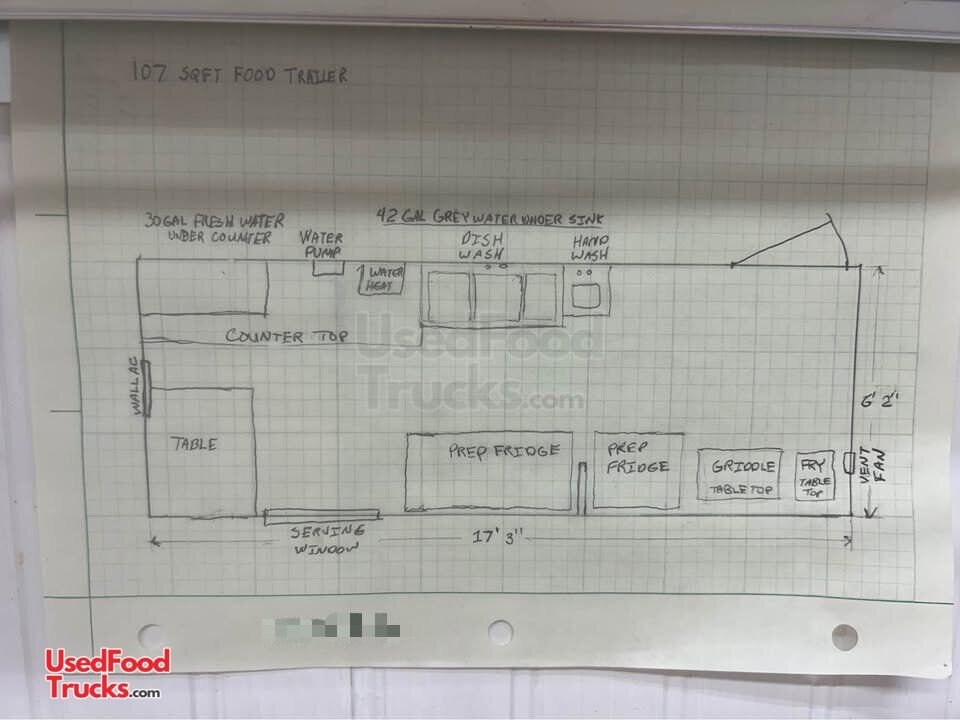 107 SQFT FOOD TRAILER
30 GAL FRESH WATER
UNDER COUNTER
WATER
PUMP
42 GAL GREY WATER UNDER SINK
DISH
WASH
HAND
WASH
WATER
HEAT
COUNTER TOP
UsedFood
Trucks.com
WALL AC
6' 2"
TABLE
PREP FRIDGE
PREP
FRIDGE
GRIDDLE
TABLE TOP
FRY
TABLE
TOP
VENT
FAN
SERVING
WINDOW
17' 3"
UsedFood
Trucks.com